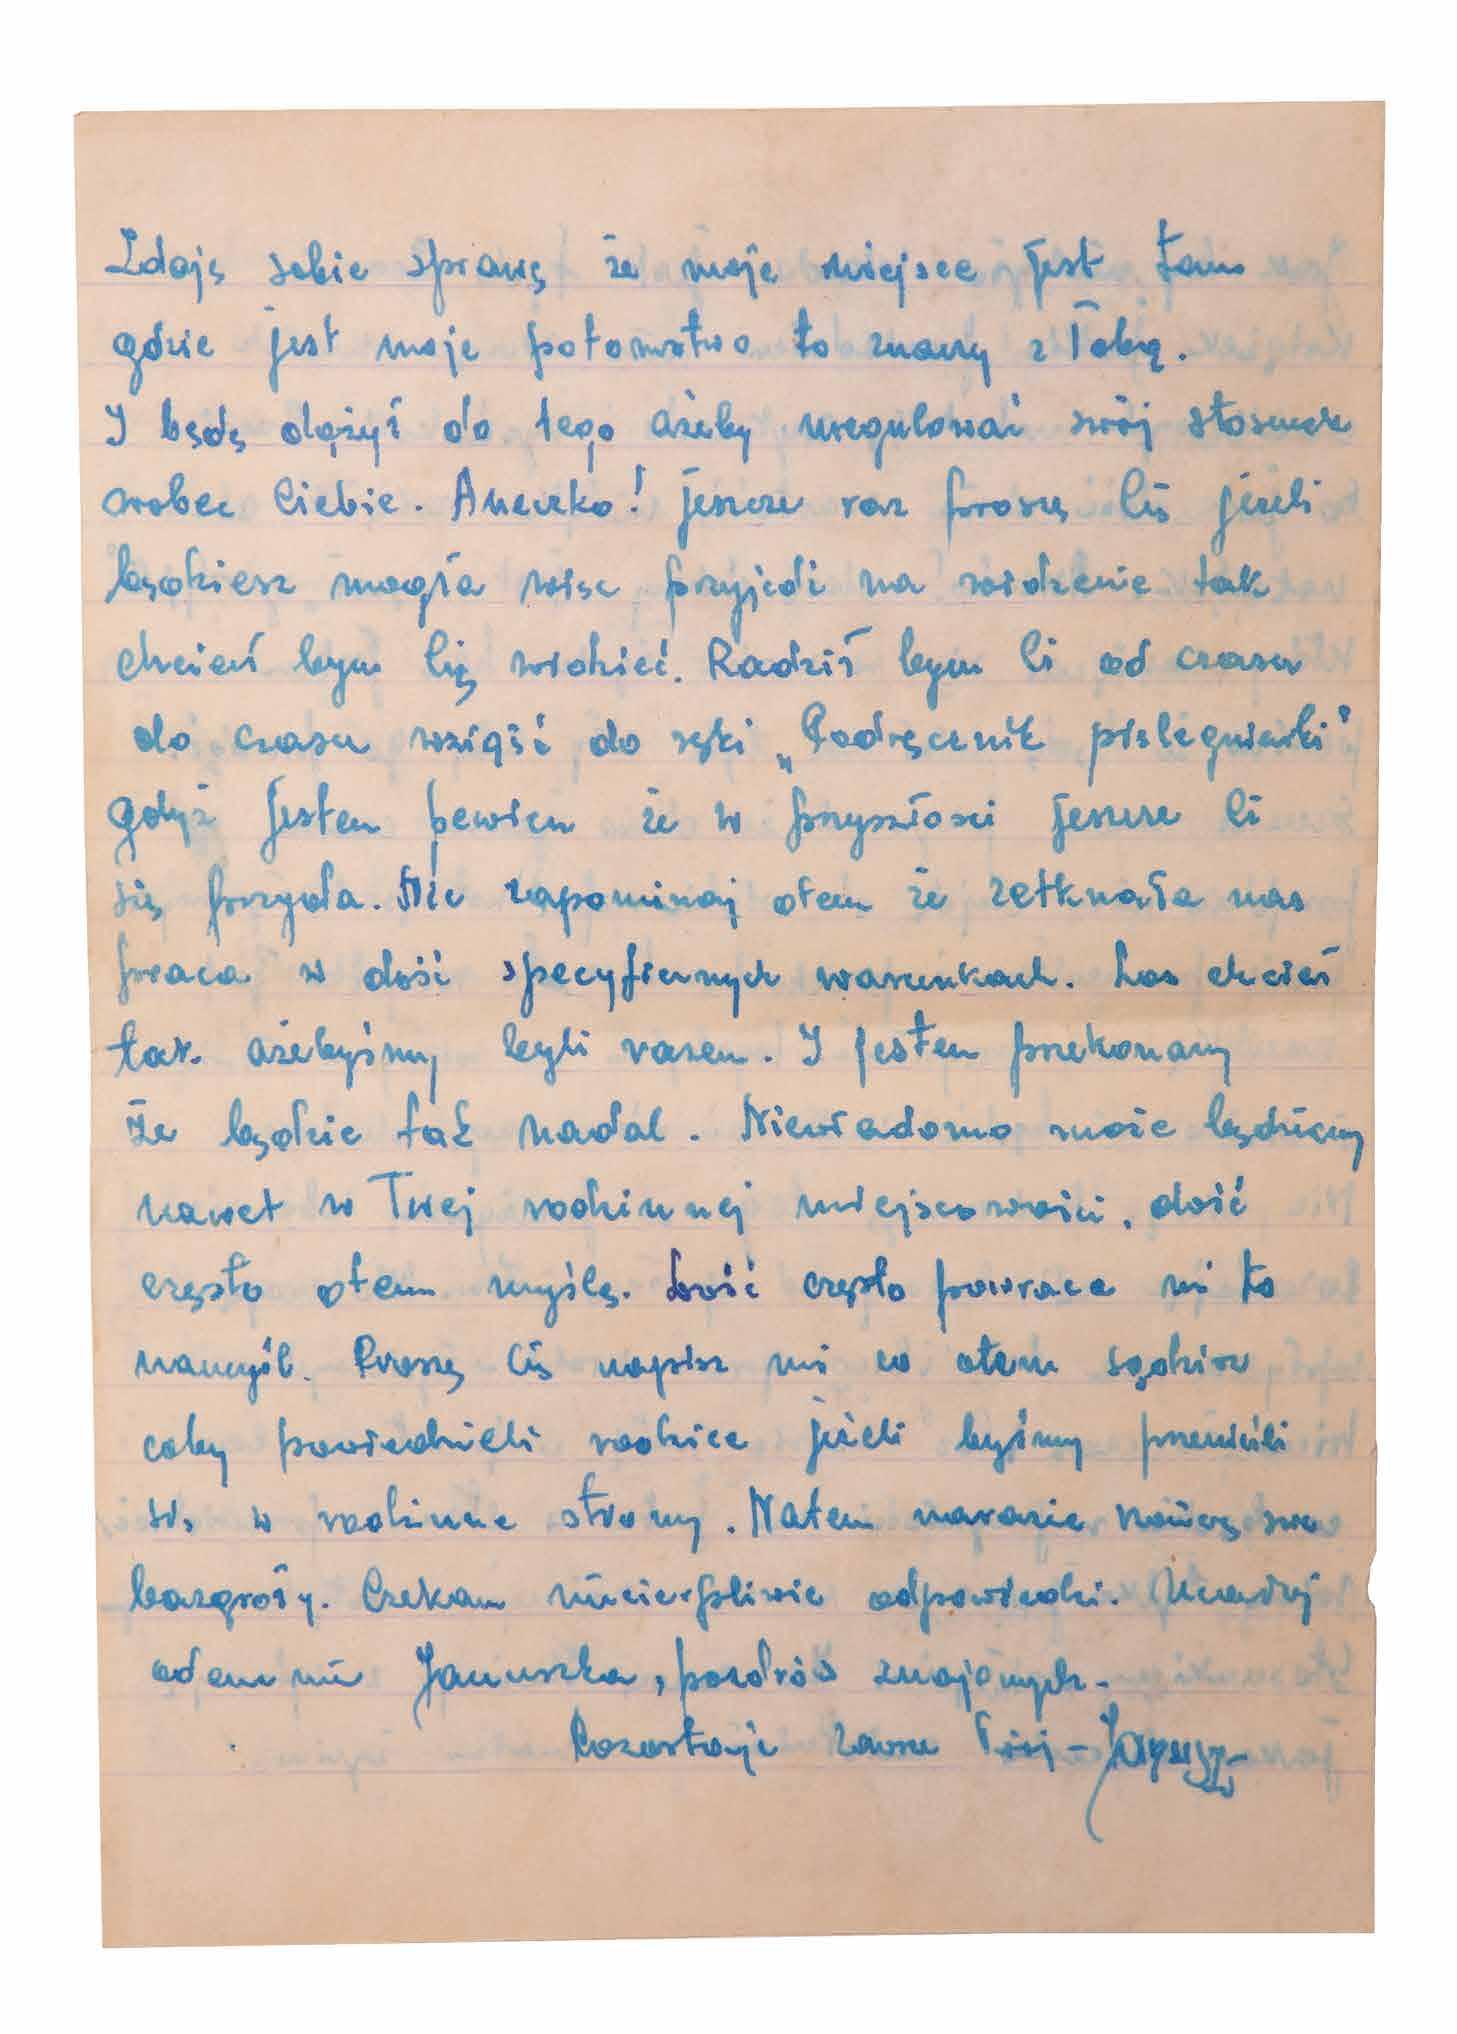 Zdaję sobie sprawę że moje miejsce jest tam
gdzie jest moje potomstwo to znaczy z Tobą.
I będę dążył do tego ażeby uregulować swój stosunek
wobec Ciebie. Aneczko! jeszcze raz proszę Cię jeżeli
będziesz mogła więc przyjedź na widzenie tak
chciał bym Cię widzieć. Radził bym Ci od czasu
do czasu wziąść do ręki „Podręcznik pielegniarki"
gdyż jestem pewien że w przyszłości jeszcze Ci
się przyda. Nie zapominaj otem że zetknała nas
praca w dość specyficznych warunkach. Los chciał
tak ażebyśmy byli razem. I jestem przekonany
że będzie tak nadal. Niewiadomo może będziemy
nawet w Twej rodzinnej miejscowości, dość
często otem myślę. Dość często powraca mi to
namyśl. Proszę Cię napisz mi co otem sądzisz
coby powiedzieli rodzice jeżeli byśmy przenieśli
się w rodzinne strony. Natem narazie kończę swe
bazgroły. Czekam niecierpliwie odpowiedzi. Ucałuj
odemnie Januszka, pozdrów znajomych.
Pozostaje zawsze Twój - Janusz